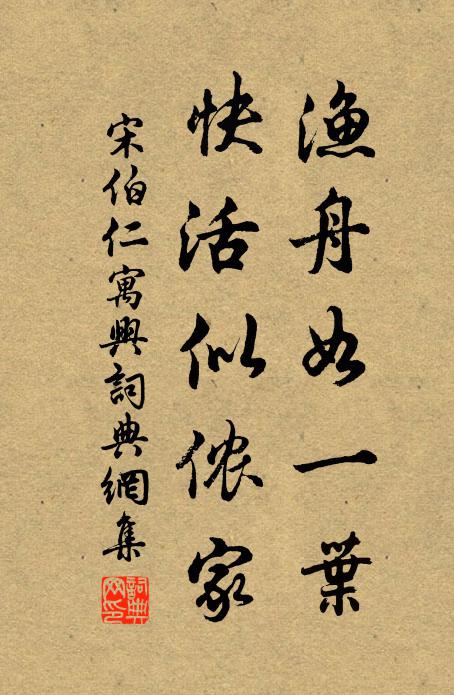 渔舟如一葉
快活似侬家
宋伯仁寓興詞典網集
詞典網印